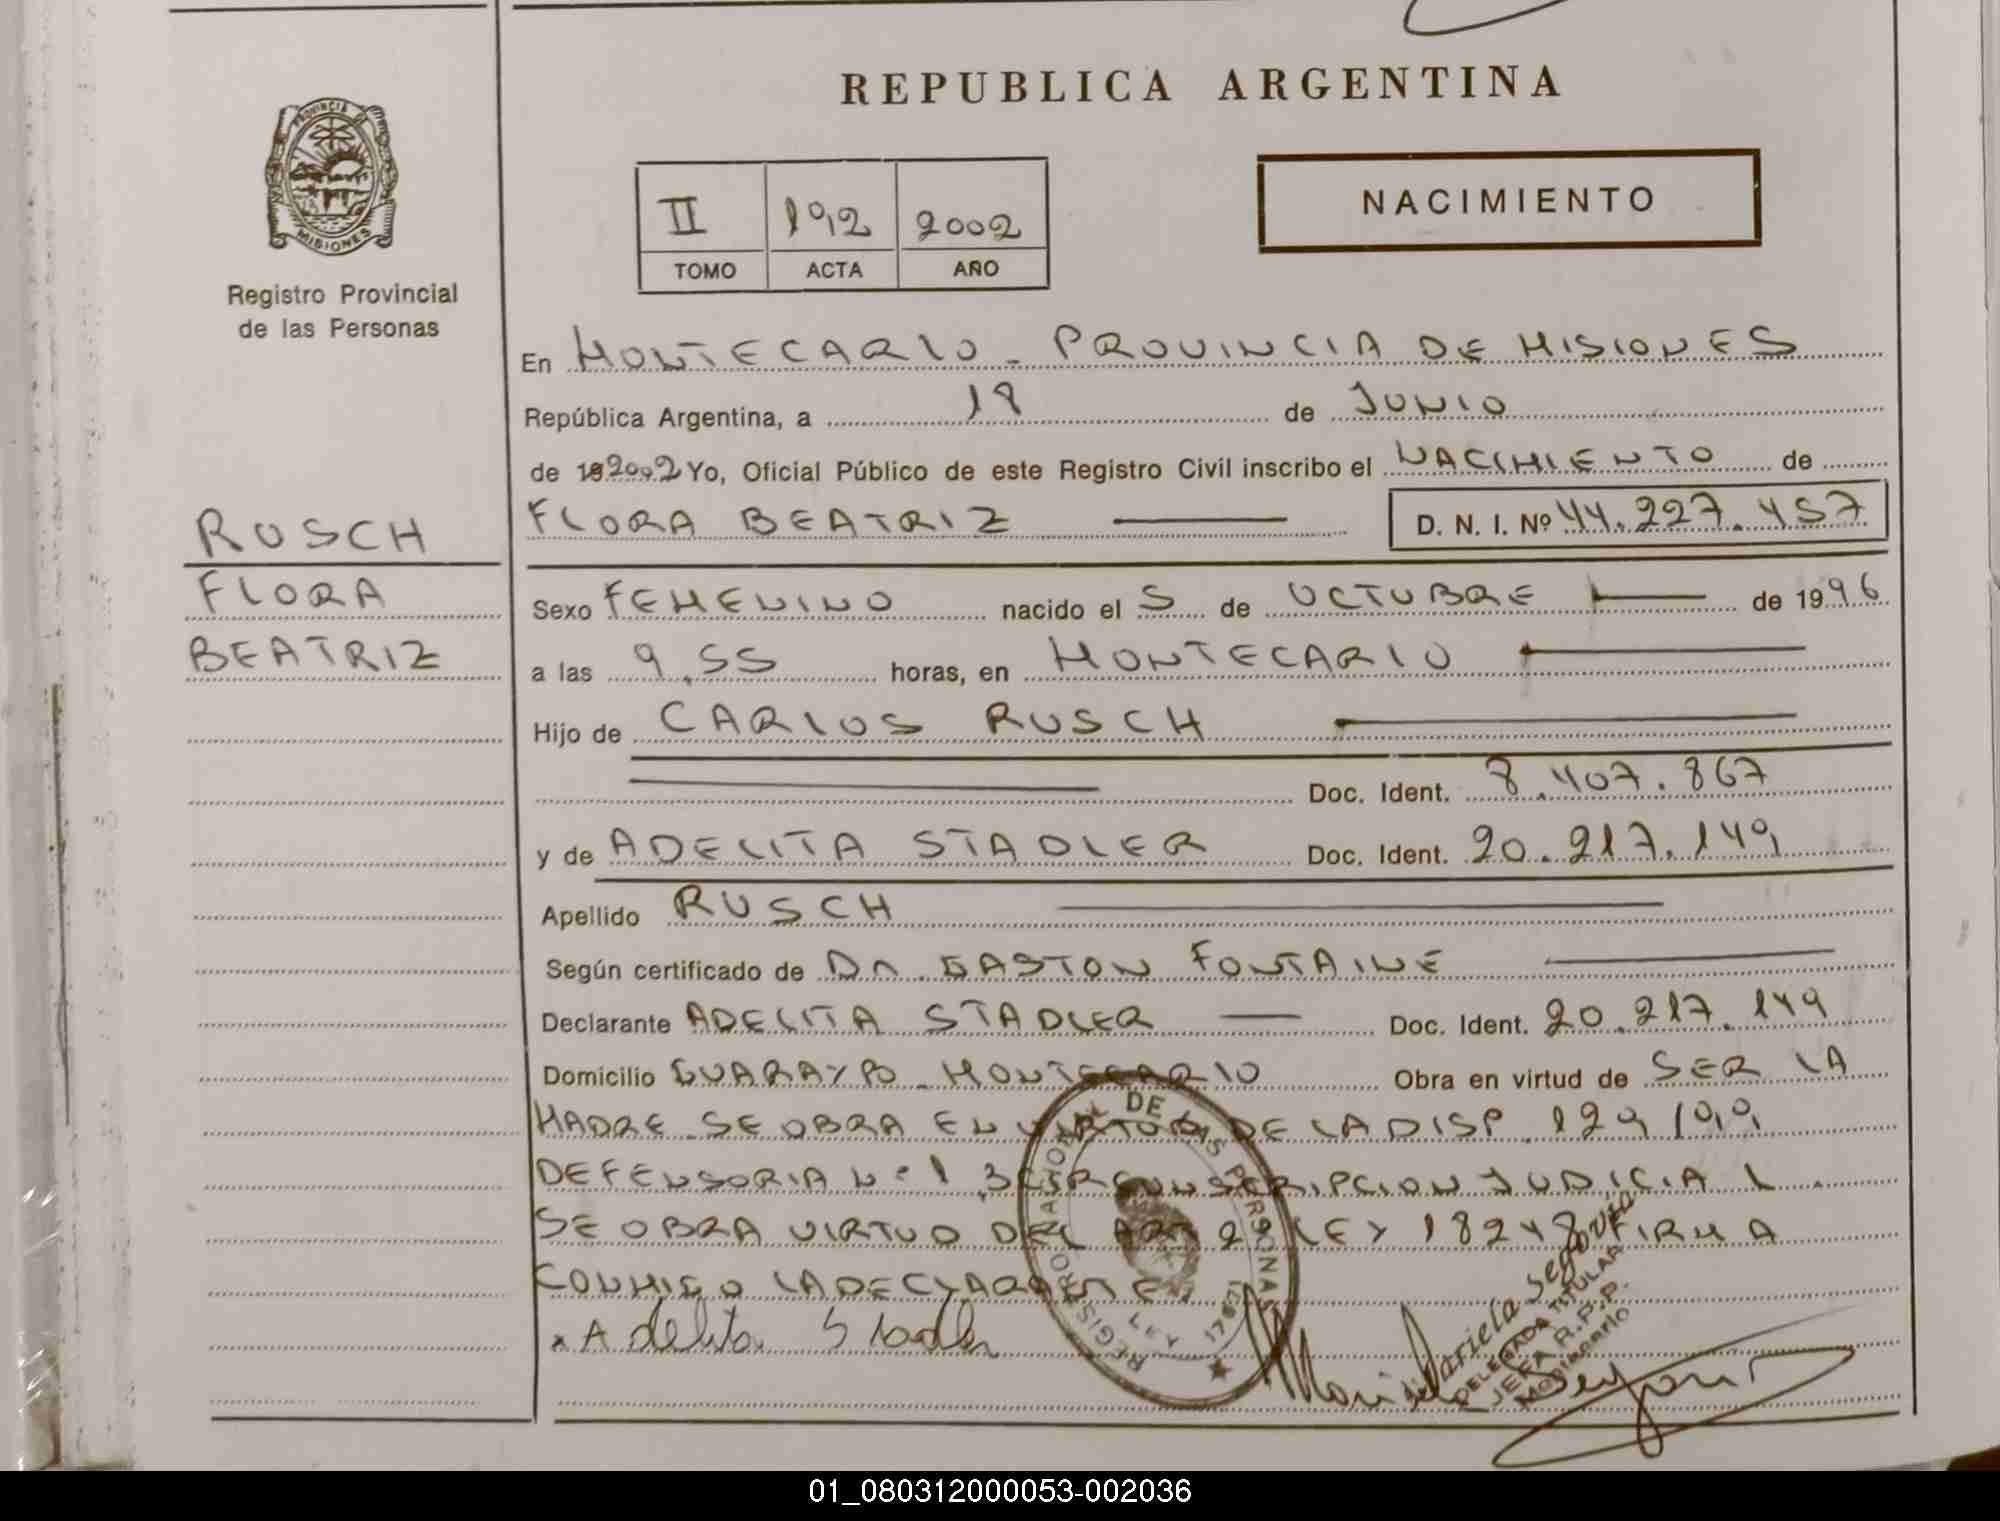 REPUBLICA ARGENTINA
PROVINCIA DE MISIONES
Registro Provincial
de las Personas
II 192 2002
TOMO ACTA AÑO
NACIMIENTO
En MONTECARLO - PROVINCIA DE MISIONES
República Argentina, a 18 de JUNIO
de 192002 Yo, Oficial Público de este Registro Civil inscribo el NACIMIENTO de
FLORA BEATRIZ D. N. I. Nº 44.227.457
RUSCH
FLORA
BEATRIZ
Sexo FEMENINO nacido el 5 de OCTUBRE de 1996
a las 9.55 horas, en MONTECARLO
Hijo de CARLOS RUSCH
Doc. Ident. 8.407.867
y de ADELITA STADLER Doc. Ident. 20.217.149
Apellido RUSCH
Según certificado de Dr. GASTON FONTAINE
Declarante ADELITA STADLER Doc. Ident. 20.217.149
Domicilio GUARAYPO - MONTECARLO Obra en virtud de SER LA
MADRE. SE OBRA EN VIRTUD DE LA DISP. 129/99
DEFENSORIA Nº 1 3 CIRCUNSCRIPCION JUDICIAL.
SE OBRA VIRTUD DEL ART 2 LEY 18248 FIRMA
CONMIGO LA DECLARANTE
x Adelita Stadler
REGISTRO NACIONAL DE LAS PERSONAS
LEY 17671
Mariela Segovia
DELEGADA TITULAR
JEFA R.P.P.
Montecarlo
01_080312000053-002036